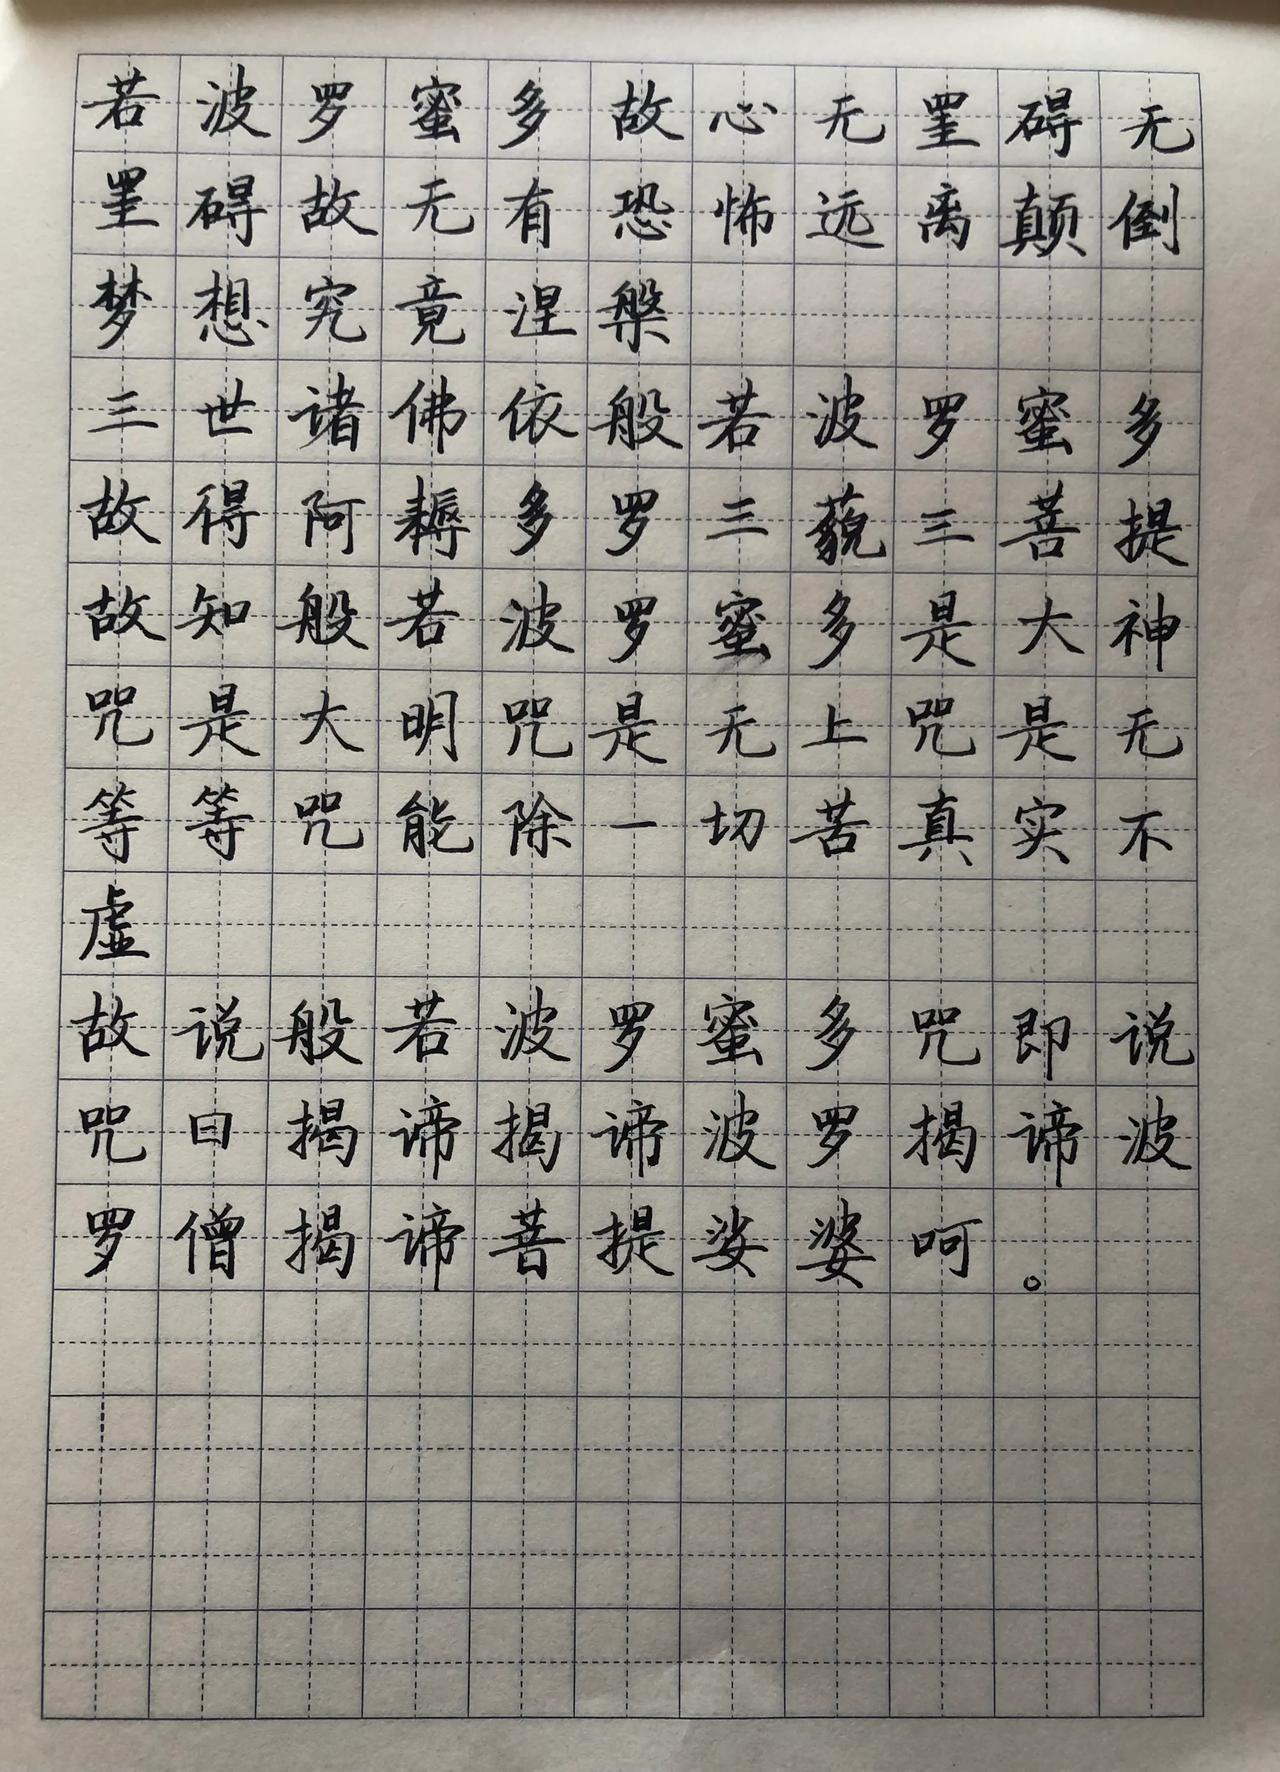 若波罗蜜多故心无罣碍无
罣碍故无有恐怖远离颠倒
梦想究竟涅槃
三世诸佛依般若波罗蜜多
故得阿耨多罗三藐三菩提
故知般若波罗蜜多是大神
咒是大明咒是无上咒是无
等等咒能除一切苦真实不
虚
故说般若波罗蜜多咒即说
咒曰揭谛揭谛波罗揭谛波
罗僧揭谛菩提娑婆呵。